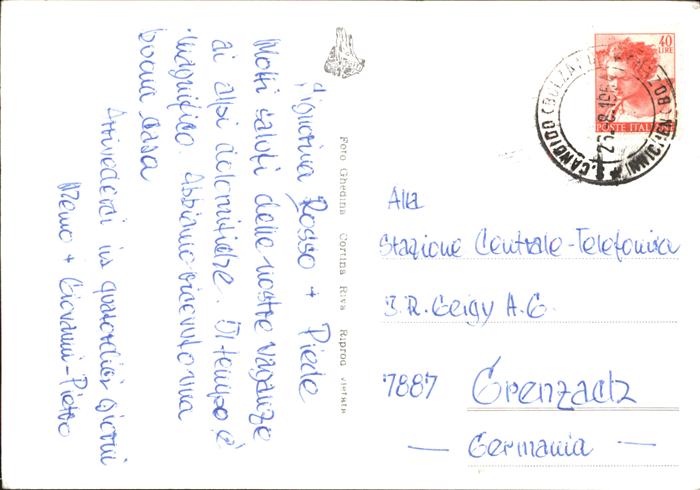 Signorina Rosso + Piede
Molti saluti delle nostre vaganze
ai alpi dolomitiche. Il tempo è
magnifico. Abbiamo ricevuto una
buona casa
Arrivederci in quatordici giorni
Nemo + Giovanni-Pietro
Foto Ghedina Cortina Riva Riprod vietata
40
LIRE
POSTE ITALIANE
S. CANDIDO (BOLZANO)
INNICHEN
Alla
Stazione Centrale-Telefonica
J.R. Geigy A.G.
7887 Grenzach
— Germania —